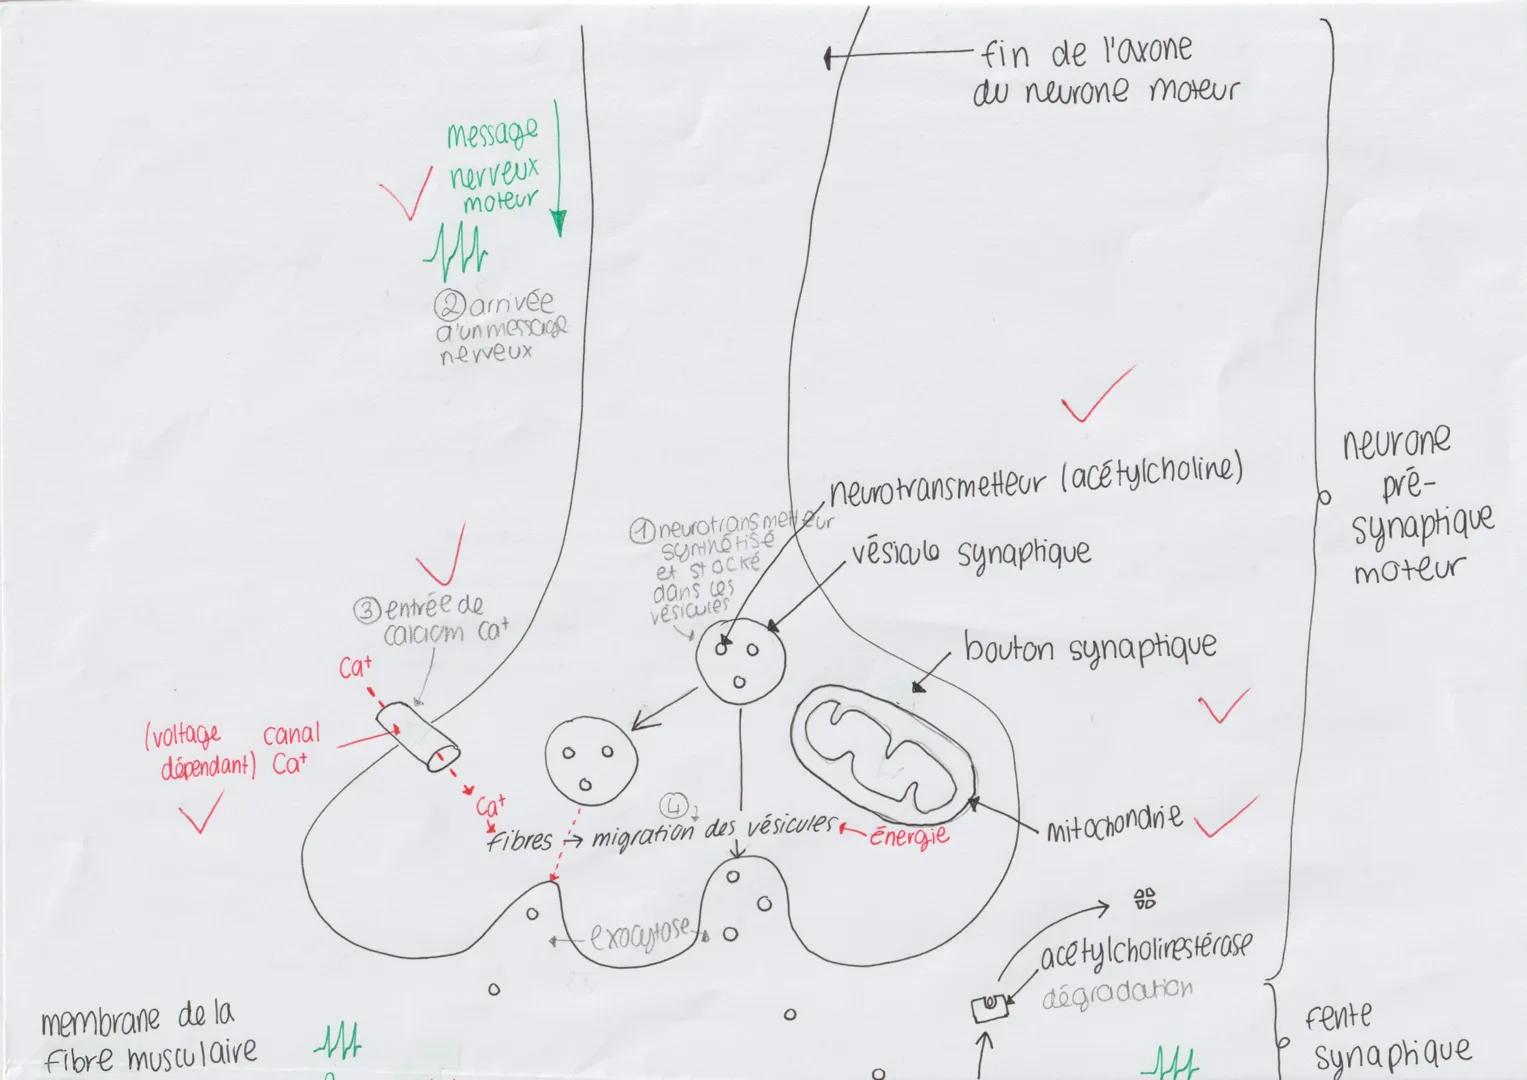 fin de l'axone
du neurone moteur
message
nerveux
moteur
② arrivée
d'un message
nerveux
neurone
pré-
synaptique
moteur
neurotransmetteur (acétylcholine)
① neurotransmetteur
synthétisé
et stocké
dans les
vésicules
vésicule synaptique
③ entrée de
calcium Ca+
bouton synaptique
Ca+
(voltage
dépendant)
canal
Ca+
Ca+
④
fibres → migration des vésicules
énergie
mitochondrie
exocytose
acétylcholinestérase
dégradation
membrane de la
fibre musculaire
fente
synaptique